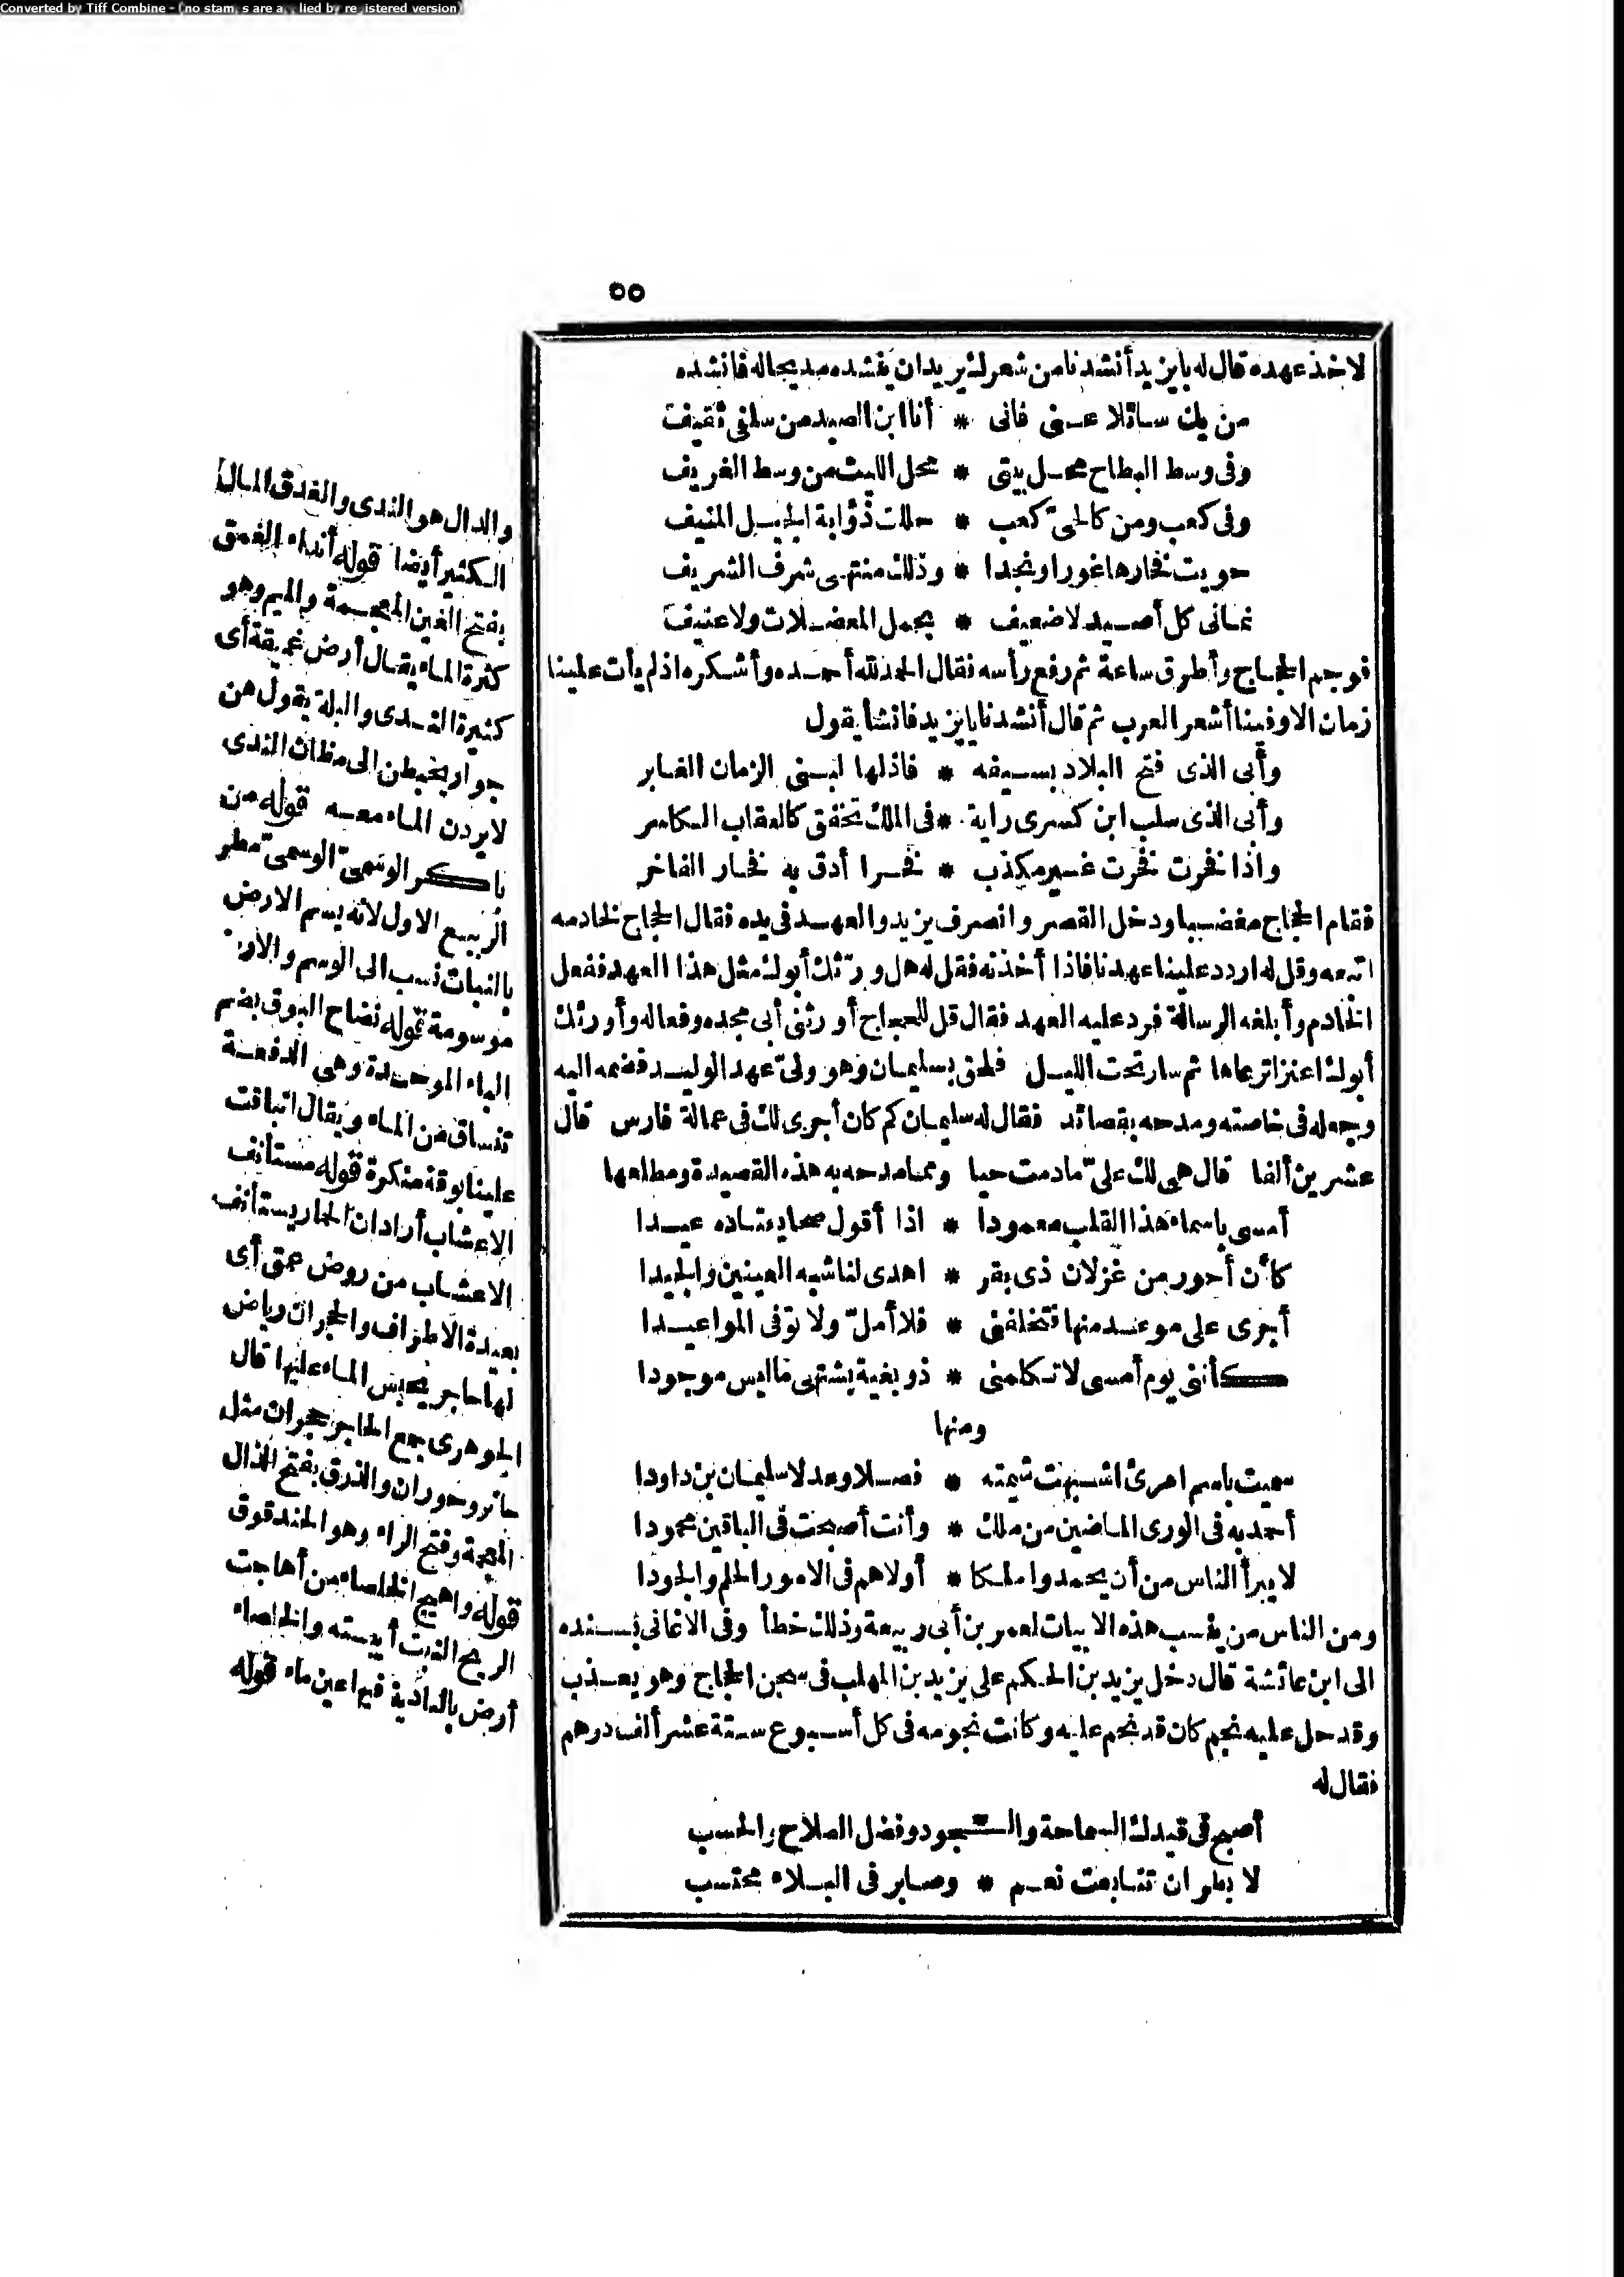 Converted by Tiff Combine - (no stamps are applied by registered version)
٥٥
لاخذ عهده قال له يايزيد أنشدنا من شعرك يريد ان ينشده مديحا له فانشده
من يك سائلا عـنى فانى * أنا ابن الصيد من سلفى ثقيف
وفى وسط البطاح محـل بيتى * محل الليث من وسط الغريف
وفى كعب ومن كالحىّ كعب * حللت ذؤابة الجبـل المنيف
حويت فخارها غورا ونجدا * وذلك منتهى شرف الشريف
نمـانى كل أصـيد لا ضعيف * يحمل المعضـلات ولا عنيف
فوجم الحجاج وأطرق ساعة ثم رفع رأسه فقال الحمد لله أحمـده وأشـكره اذ لم يأت علينا
زمان الا وفينا أشعر العرب ثم قال أنشدنا يا يزيد فانشأ يقول
وأبى الذى فتح البلاد بسـيفه * فاذلها لبـنى الزمان الغـابر
وأبى الذى سلب ابن كسرى راية * فى الملك تخفق كالعقاب الـكاسر
واذا فخرت فخرت غـير مكذب * فخـرا أدق به فخـار الفاخر
فقام الحجاج مغضـبا ودخل القصر وانصرف يزيد والعهـد فى يده فقال الحجاج لخادمه
اتبعه وقل له اردد علينا عهدنا فاذا أخذته فقل له هل ورّثك أبوك مثل هذا العهد ففعل
الخادم وأبلغه الرسالة فرد عليه العهد فقال قل للحجاج أورثنى أبى مجده وفعاله وأورثك
أبوك اعنزا ترعاها ثم سار تحت الليـل فلحق بسليمـان وهو ولىّ عهد الوليـد فضمه اليه
وجعله فى خاصته ومدحه بقصائد فقال له سليمـان كم كان أجرى لك فى عمالة فارس قال
عشرين ألفا قال هى لك علىّ مادمت حيا وممـا مدحه به هذه القصيدة ومطلعها
أمسى باسماء هذا القلب معمودا * اذا أقول صحا يعتـاده عيـدا
كأن أحور من غزلان ذى بقر * اهدى لنا شبه العينين والجيدا
أجرى على موعـد منها فتخلفنى * فلا أملّ ولا توفى المواعيـدا
كأننى يوم أمسى لا تـكلمنى * ذو بغية يشتهى ما ليس موجودا
ومنها
سميت باسم امرئ اشـبهت شيمته * فضـلا وعدلا سليمـان بن داودا
أحمد به فى الورى المـاضين من ملك * وأنت أصبحت فى الباقين محمودا
لا يبرأ الناس من أن يحمدوا ملـكا * أولاهم فى الامور الحلم والجودا
ومن الناس من ينسب هذه الابيات لعمر بن أبى ربيعة وذلك خطأ وفى الاغانى بسـنده
الى ابن عائشة قال دخل يزيد بن الحـكم على يزيد بن المهلب فى سجن الحجاج وهو يعـذب
وقد حل عليه نجم كان قد نجم عليه وكانت نجومه فى كل أسبوع سـتة عشر ألف درهم
فقال له
أصبح فى قيدك السماحة والـجود وفضل الصلاح والحسب
لا بطر ان تتـابعت نعـم * وصـابر فى البـلاء محتسب
والدال هو الندى والغدق المـال
الـكثير أيضا قوله أنداء الغمق
بفتح الغين المعجـمة والميم وهو
كثرة المـاء يقـال أرض غمقة أى
كثيرة النـدى والبلة يقول هن
جوار يخبطن الى مظان الندى
لا يردن المـاء معـه قوله من
باكـر الوسمىّ الوسمىّ مطر
الربيع الاول لانه يسم الارض
بالنبات نسب الى الوسم والارض
موسومة قوله نضاح البوق بضم
الباء الموحـدة وهى الدفعـة
تنساق من المـاء ويقال انباقت
علينا بوقة منكرة قوله مستأنف
الاعشاب أراد ان الحمار يستأنف
الاعشـاب من روض عمق أى
بعيدة الاطراف والحجران رياض
لها حاجر يحبس المـاء عليها قال
الجوهرى جمع الحاجر حجران مثل
حائر وحوران والذرق بفتح الذال
المعجمة وفتح الراء وهو الحندقوق
قوله واهيج الخلصاء من أهاجت
الريح النبت أيبسته والخلصاء
أرض بالبادية فيها عين ماء قوله